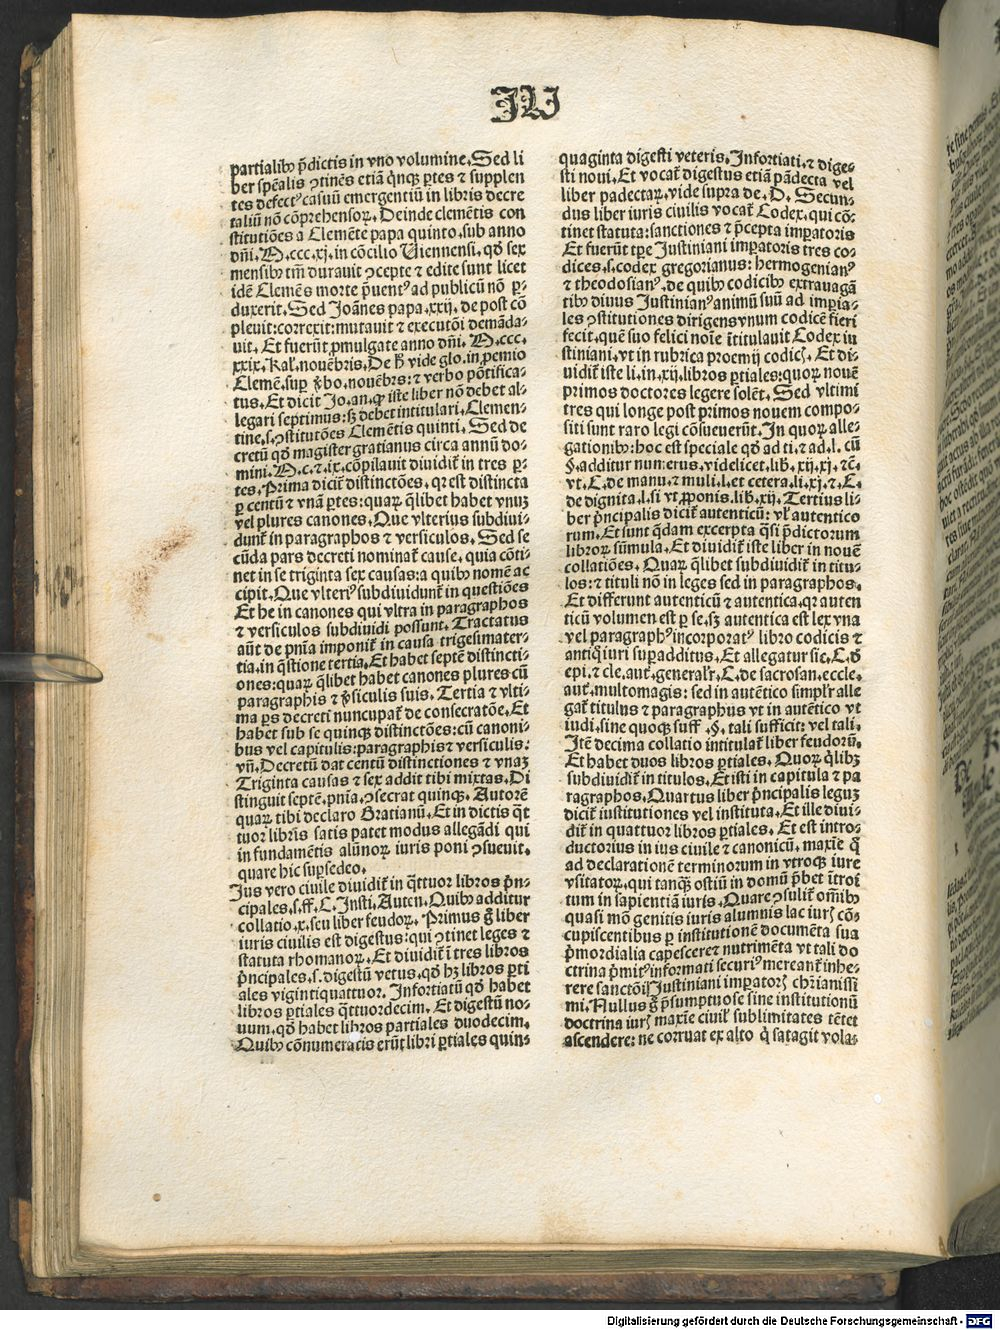 JU
partialibꝰ p̄dictis in vno volumine. Sed li
ber sp̄ealis ꝯtinēs etiā qͥnqꝫ ꝑtes & supplen
tes defectꝰ casuū emergentiū in libris decre
taliū nō cōprehensoꝝ. Deinde clemētis con
stitutiōes a Clemēte papa quinto. sub anno
dn̄i. M.ccc.xj. in cōcilio Uiennensi. qd̄ sex
mensibꝰ tm̄ durauit ꝯcepte & edite sunt licet
idē Clemēs morte p̄uentꝰ ad publicū nō ꝓ-
duxerit. Sed Joānes papa .xxij. de post cō
pleuit: correxit: mutauit & executōi demāda-
uit. Et fuerūt ꝓmulgate anno dn̄i. M.ccc.
xxix. kal. nouēbris. De h̄ vide glo. in ꝓemio
Clemē. suꝑ v̓bo. nouēbrs: & verbo pōtifica-
tus. Et dicit Jo. an. ꝙ iste liber nō debet al-
legari septimus: sꝫ debet intitulari. Clemen-
tine. s. ꝯstitutōes Clemētis quinti. Sed de
cretū qd̄ magister gratianus circa annū do-
mini. M.c. & ix. cōpilauit diuidit̄ in tres ꝑ-
tes. Prima dicit̄ distinctōes. qꝛ est distincta
ꝑ centū & vnā ꝑtes: quaꝝ qͣlibet habet vnuꝫ
vel plures canones. Que vlterius subdiui-
dunt̄ in paragraphos & versiculos. Sed se
cūda pars decreti nominat̄ cause. quia cōti-
net in se triginta sex causas: a quibꝰ nomē ac
cipit. Que vlteriꝰ subdiuidunt̄ in questiōes
Et he in canones qui vltra in paragraphos
& versiculos subdiuidi possunt. Tractatus
aūt de pnīa imponit̄ in causa trigesimater-
tia. in qͣstione tertia. Et habet septē distincti-
ones: quaꝝ qͣlibet habet canones plures cū
paragraphis & v̓siculis suis. Tertia & vlti-
ma ꝑs decreti nuncupat̄ de consecratōe. Et
habet sub se quinqꝫ distinctōes: cū canoni-
bus vel capitulis: paragraphis & versiculis.
vn̄. Decretū dat centū distinctiones & vnaꝫ
Triginta causas & sex addit tibi mixtas. Di
stinguit septē. pnīa. ꝯsecrat quinqꝫ. Autorē
quaꝝ tibi declaro Gratianū. Et in dictis qͣt
tuor libris satis patet modus allegādi qui
in fundamētis alūnoꝝ iuris poni ꝯsueuit.
quare hic suꝑsedeo.
Jus vero ciuile diuidit̄ in qͣttuor libros pͥn-
cipales. s. ff. C. Insti. Auten. Quibꝰ additur
collatio .x. seu liber feudoꝝ. Primus gͦ liber
iuris ciuilis est digestus: qui ꝯtinet leges &
statuta rhomanoꝝ. Et diuidit̄ ī tres libros
pͥncipales. s. digestū vetus. qd̄ hꝫ libros ꝑti
ales vigintiquattuor. Infortiatū qd̄ habet
libros ꝑtiales qͣttuordecim. Et digestū no-
uum. qd̄ habet libros partiales duodecim.
Quibꝰ cōnumeratis erūt libri ꝑtiales quin-
quaginta digesti veteris. Infortiati. & dige-
sti noui. Et vocat̄ digestus etiā pādecta vel
liber padectaꝝ. vide supra de. D. Secun-
dus liber iuris ciuilis vocat̄ Codex. qui cō-
tinet statuta: sanctiones & p̄cepta imꝑatoris
Et fuerūt tꝑe Justiniani imꝑatoris tres co-
dices. s. codex gregorianus: hermogenianꝰ
& theodosianꝰ. de quibꝰ codicibꝰ extrauagā
tibꝰ diuus Justinianꝰ animū suū ad imꝑia-
les ꝯstitutiones dirigens vnum codicē fieri
fecit. quē suo felici noīe ītitulauit Codex iu
stiniani. vt in rubrica proemij codicꝭ. Et di-
uidit̄ iste li. in .xij. libros ꝑtiales: quoꝝ nouē
primos doctores legere solēt. Sed vltimi
tres qui longe post primos nouem compo-
siti sunt raro legi cōsueuerūt. In quoꝝ alle-
gationibꝰ: hoc est speciale qd̄ ad ti. & ad .l. cū
§. additur numerus. videlicet. lib. xij. xj. &c̄.
vt. C. de manu. & muli. l. et cetera. li. xj. & C.
de dignita. l. si vt ꝓponis. lib. xij. Tertius li-
ber pͥncipalis dicit̄ autenticū: vl̓ autentico
rum. Et sunt qͣdam excerpta qͣsi p̄dictorum
libroꝝ sūmula. Et diuidit̄ iste liber in nouē
collatiōes. Quaꝝ qͣlibet subdiuidit̄ in titu-
los: & tituli nō in leges sed in paragraphos.
Et differunt autenticū & autentica. qꝛ auten
ticū volumen est ꝑ se. sꝫ autentica est lex vna
vel paragraphꝰ incorporatꝰ libro codicis &
antiqͦ iuri suꝑadditus. Et allegatur sic. C. d̓
epi. & cle. aut̄. general̓r. C. de sacrosan. eccle.
aut̄. multomagis: sed in autētico simpl̓r alle
gat̄ titulus & paragraphus vt in autētico vt
iudi. sine quoqꝫ suff. §. tali sufficit: vel tali.
Itē decima collatio intitulat̄ liber feudorū.
Et habet duos libros ꝑtiales. Quoꝝ qͥlibꝫ
subdiuidit̄ in titulos. Et isti in capitula & pa
ragraphos. Quartus liber pͥncipalis leguꝫ
dicit̄ iustitutiones vel instituta. Et ille diui-
dit̄ in quattuor libros ꝑtiales. Et est intro-
ductorius in ius ciuile & canonicū. maxīe qͥ
ad declarationē terminorum in vtroqꝫ iure
vsitatoꝝ. qui tanqꝫ ostiū in domū p̄bet ītroi
tum in sapientiā iuris. Quare ꝯsulit̄ om̄ibꝰ
quasi mō genitis iuris alumnis lac iurꝭ cō-
cupiscentibus ꝑ institutionē documēta sua
pͥmordialia capescere & nutrimēta vt tali do
ctrina pͥmitꝰ informati securiꝰ mereant̄ inhe-
rere sanctōi Justiniani imꝑatorꝭ chr̄ianissi
mi. Nullus gͦ p̄sumptuose sine institutionū
doctrina iurꝭ maxīe ciuil̓ sublimitates tētet
ascendere: ne corruat ex alto qͥ satagit vola-
Digitalisierung gefördert durch die Deutsche Forschungsgemeinschaft - DFG